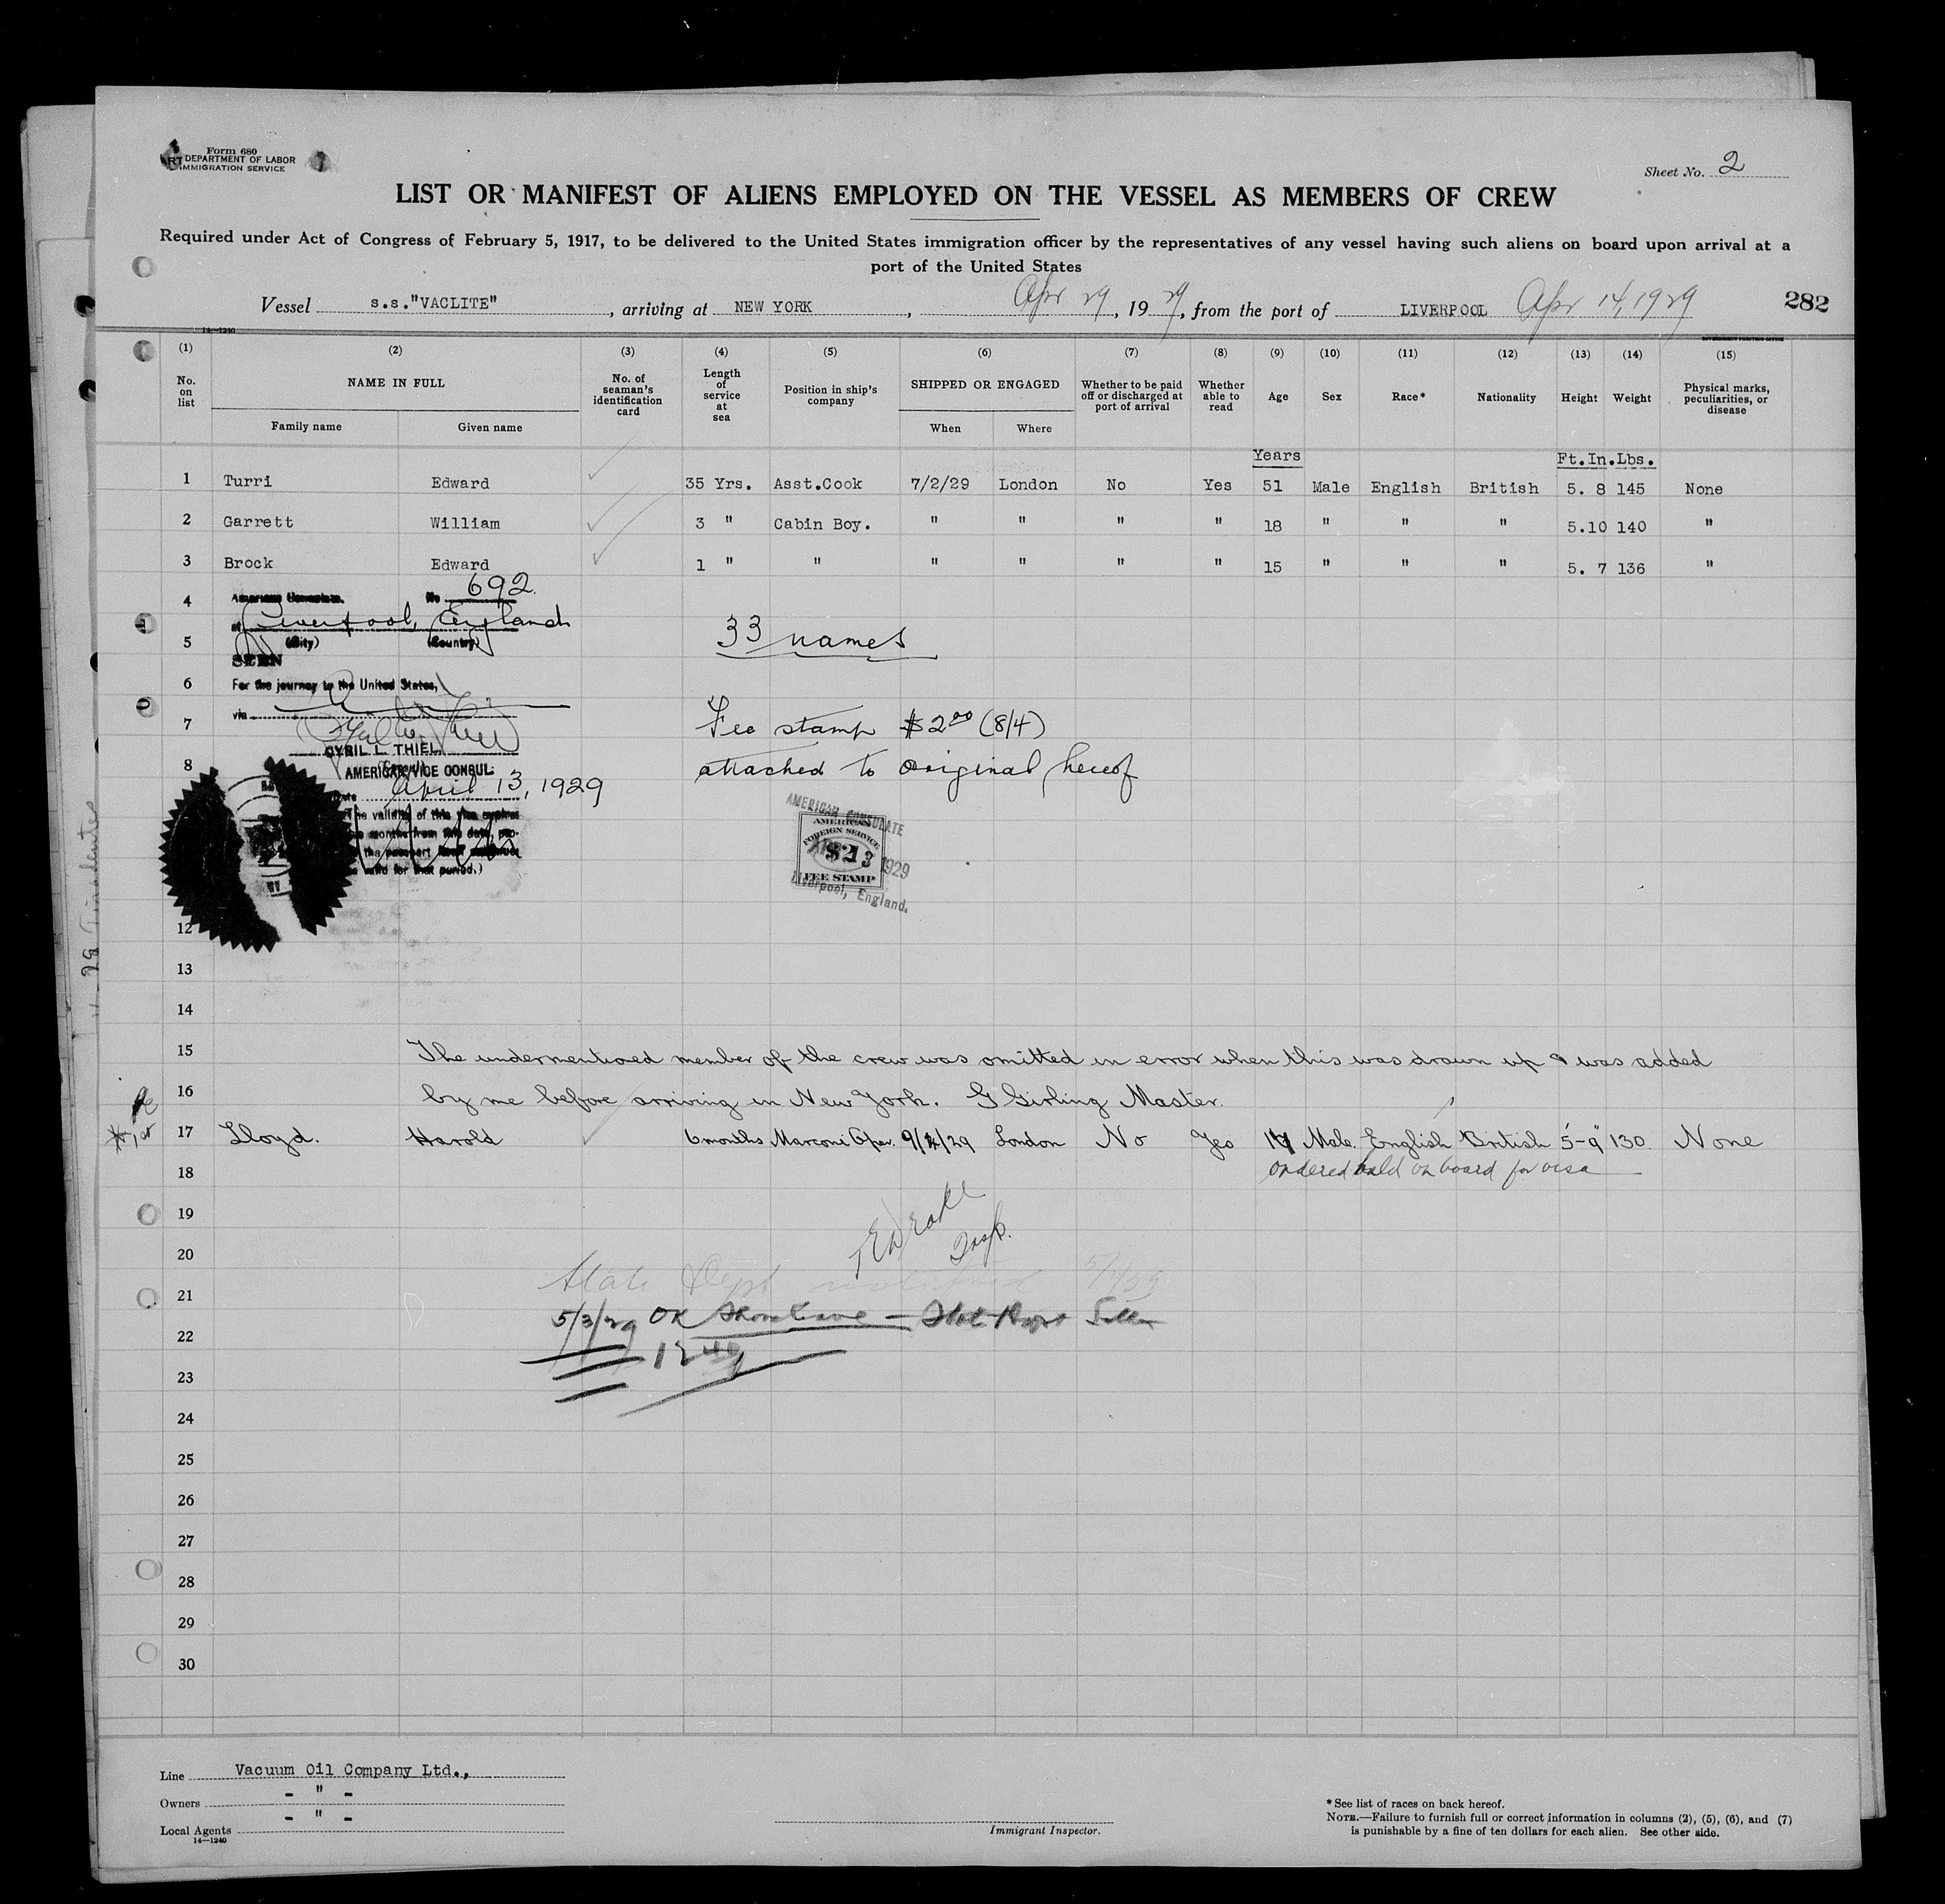 Form 680
DEPARTMENT OF LABOR
IMMIGRATION SERVICE
Sheet No. 2
LIST OR MANIFEST OF ALIENS EMPLOYED ON THE VESSEL AS MEMBERS OF CREW
Required under Act of Congress of February 5, 1917, to be delivered to the United States immigration officer by the representatives of any vessel having such aliens on board upon arrival at a
port of the United States
Vessel s.s."VACLITE", arriving at NEW YORK, Apr 29, 1929, from the port of LIVERPOOL Apr 14, 1929 282
14—1240
(1) (2) (3) (4) (5) (6) (7) (8) (9) (10) (11) (12) (13) (14) (15)
No. on list NAME IN FULL No. of seaman's identification card Length of service at sea Position in ship's company SHIPPED OR ENGAGED Whether to be paid off or discharged at port of arrival Whether able to read Age Sex Race* Nationality Height Weight Physical marks, peculiarities, or disease
Family name Given name When Where
Years Ft.In.Lbs.
1 Turri Edward 35 Yrs. Asst.Cook 7/2/29 London No Yes 51 Male English British 5. 8 145 None
2 Garrett William 3 " Cabin Boy. " " " " 18 " " " 5.10 140 "
3 Brock Edward 1 " " " " " " 15 " " " 5. 7 136 "
4 American Consulate. No 692.
at Liverpool, England
5 (City) (Country) 33 names
SEEN
6 For the journey to the United States,
7 via Fee stamp $2.00 (8/4)
CYRIL L. THIEL
8 AMERICAN VICE CONSUL attached to original hereof
Date April 13, 1929
The validity of this visa expires
months from this date, pro-
the passport
valid for that period.)
AMERICAN CONSULATE
AMERICAN
FOREIGN SERVICE
$2
13 1929
FEE STAMP
Liverpool, England.
12
13
14
15 The undermentioned member of the crew was omitted in error when this was drawn up & was added
16 by me before arriving in New York. G Girling Master.
17 Lloyd. Harold 6 months Marconi Oper. 9/4/29 London No Yes 17 Male. English British 5'-9" 130. None
18 Ordered held on board for visa
19
Insp.
20
State Dept 5/1/29
21
5/3/29 OK Shore leave — State Dept
22
23
24
25
26
27
28
29
30
Line Vacuum Oil Company Ltd.,
Owners - " -
Local Agents - " -
14—1240
Immigrant Inspector.
*See list of races on back hereof.
NOTE.—Failure to furnish full or correct information in columns (2), (5), (6), and (7)
is punishable by a fine of ten dollars for each alien. See other side.